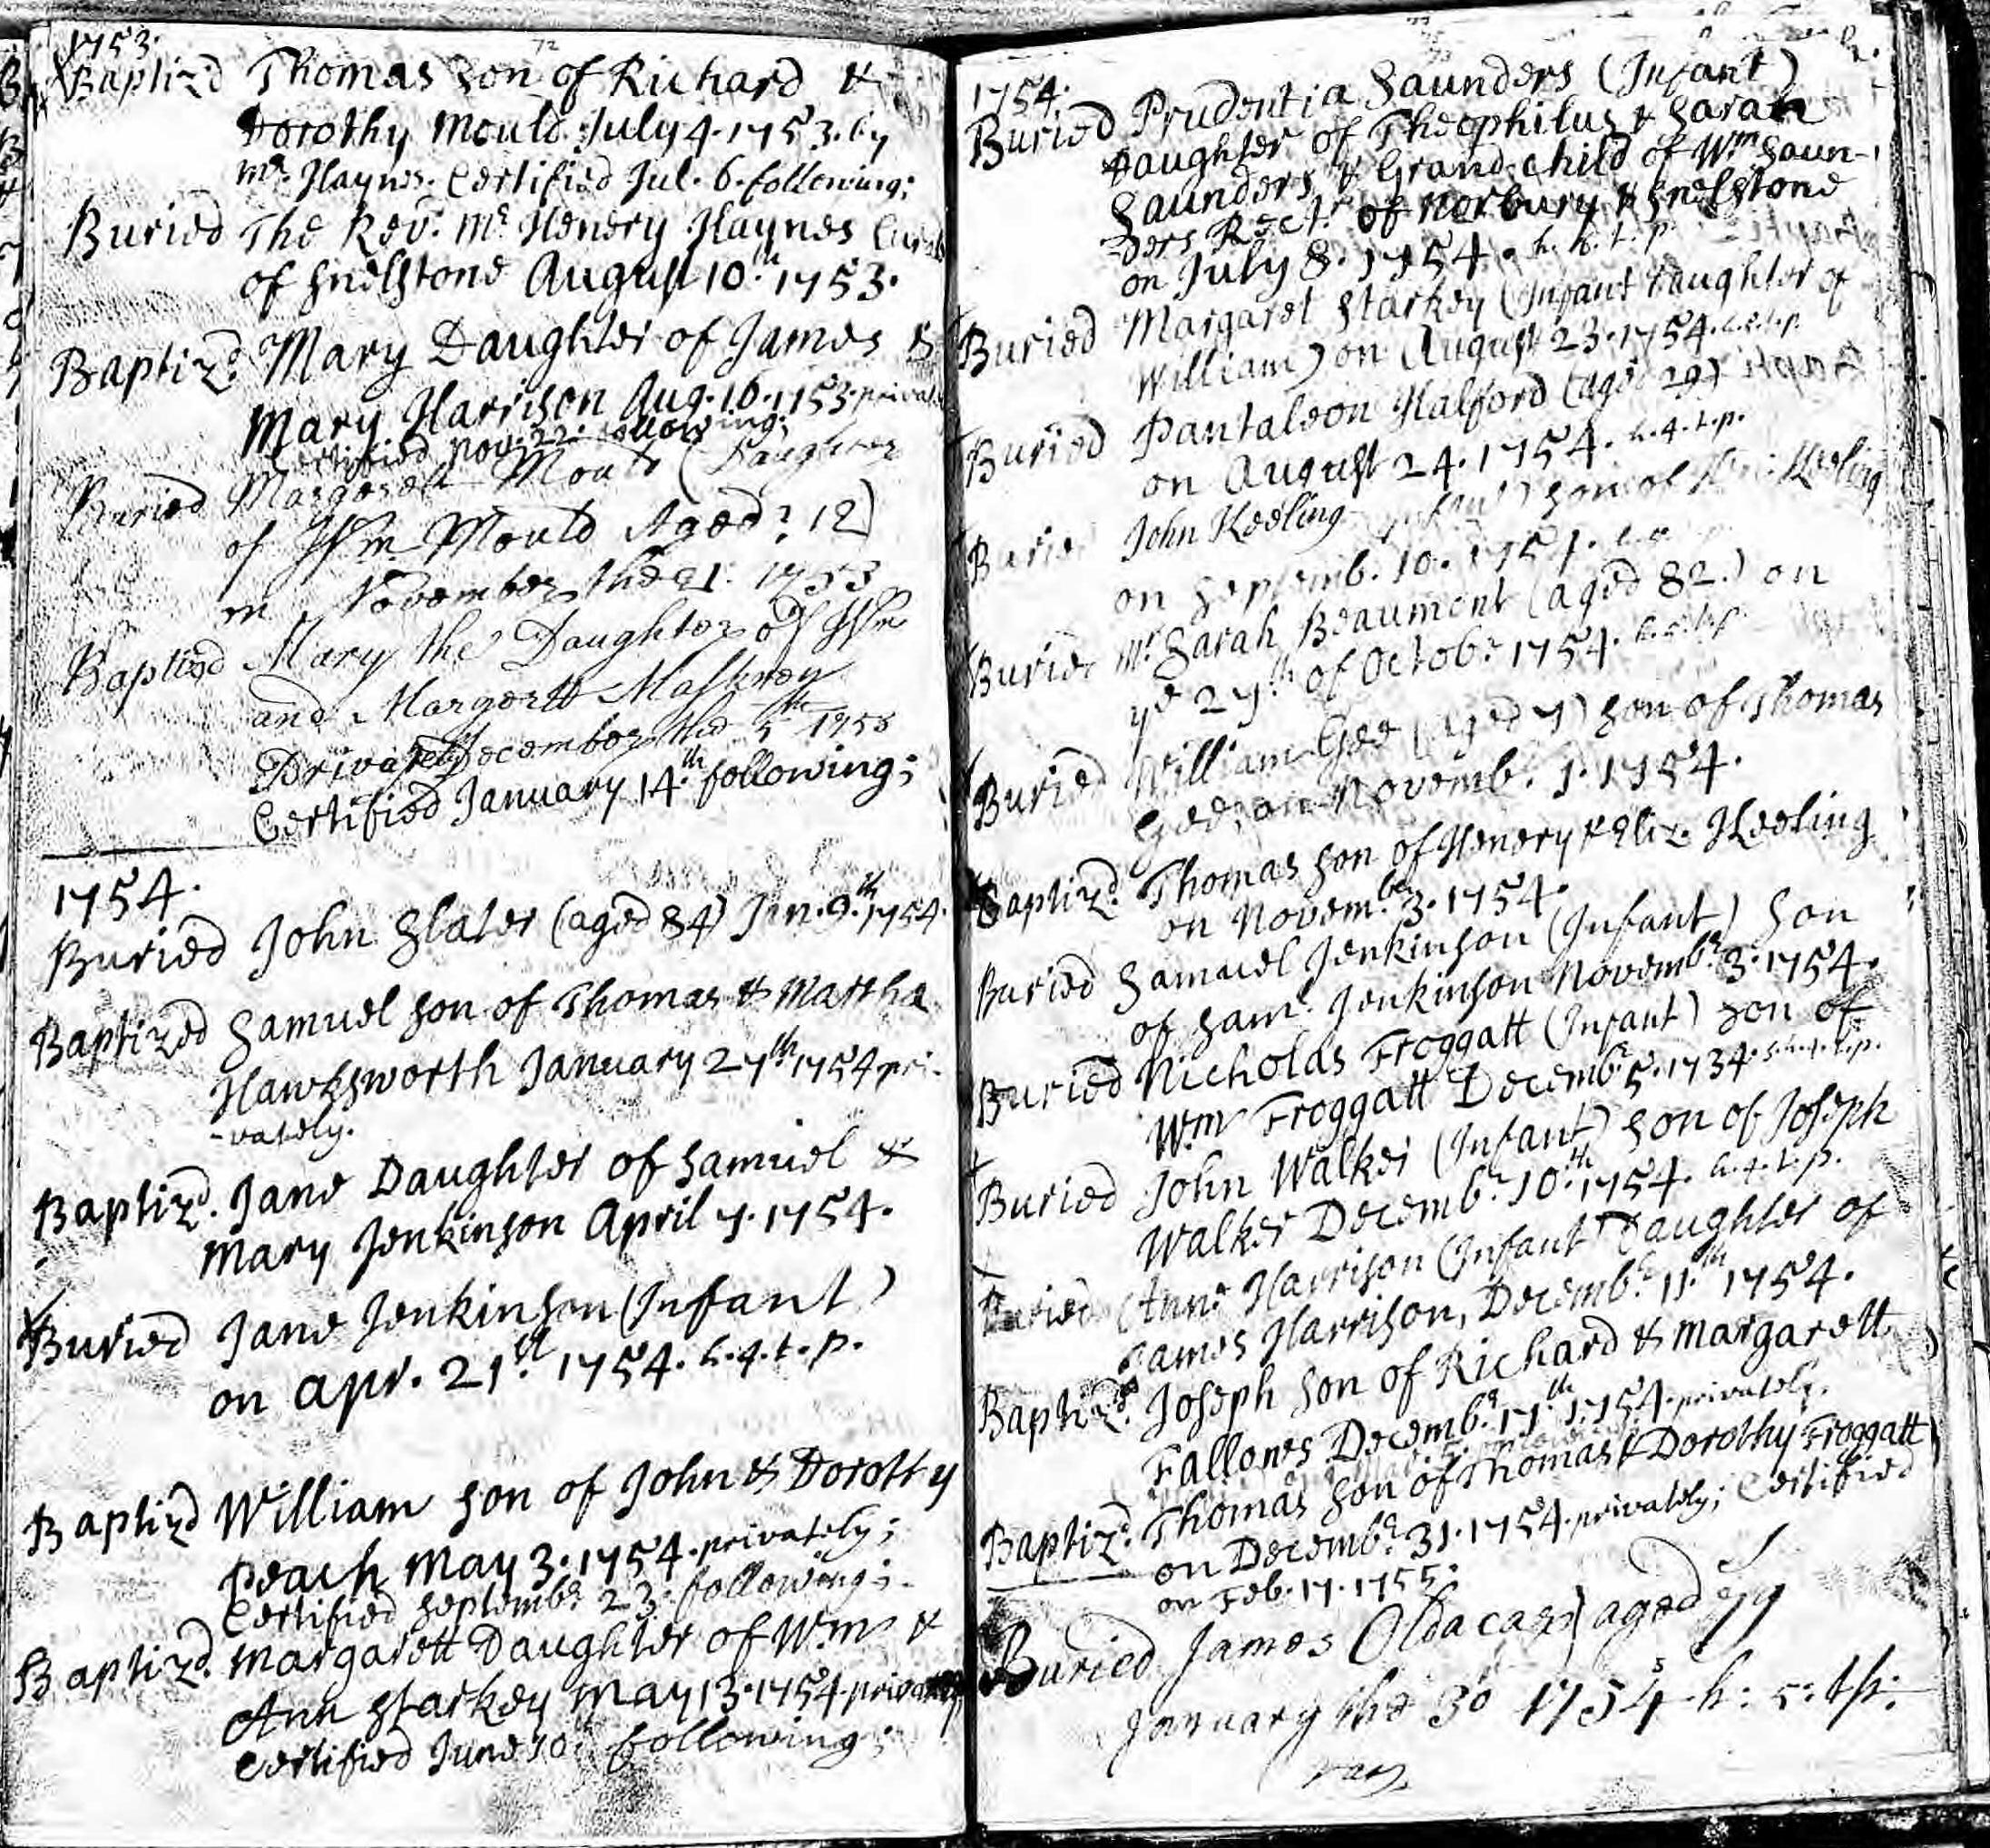 1753.
Baptiz'd Thomas son of Richard &
Dorothy Mould July 4. 1753. by
Mr. Haynes. Certified Jul. 6. following;
Buried The Rev.d Mr. Henery Haynes
of Snelstone August 10th. 1753.
Baptiz'd. Mary Daughter of James &
Mary Harrison Aug. 16. 1753. privat
Certified Nov. 22. following;
Buried Margerett Mould (Daughter
of Wm. Mould Aged 12)
on November the 21. 1753
Baptized Mary the Daughter of Wm
and Margerett
Privately December the 5th 1753
Certified January 14th. following;
1754.
Buried John Slater (aged 84) Jan. 9th. 1754.
Baptized Samuel son of Thomas & Martha
Hawksworth January 27th 1754 pri-
-vately.
Baptiz'd. Jane Daughter of Samuel &
Mary Jenkinson April 7. 1754.
Buried Jane Jenkinson (Infant)
on apr. 21th. 1754. h.q.t.p.
Baptiz'd William son of John & Dorothy
Peach May 3. 1754. privately;
Certified Septembr. 23. following;
Baptiz'd. Margarett Daughter of Wm. &
Ann Starkey May 13. 1754. privately
Certified June 10. following;
1754.
Buried Prudentia Saunders (Infant)
Daughter of Theophilus & Sarah
Saunders, & Grand-child of Wm. Saun-
-ders Rectr. of Norbury & Snelstone
on July 8. 1754. h.q.t.p.
Buried Margaret Starkey (Infant Daughter of
William) on August 23. 1754. h.q.t.p.
Buried Pantaleon Halford (aged 29)
on August 24. 1754. h.q.t.p.
Buried John Keeling (Infant) son of Keeling
on Septemb. 10. 1754.
Buried Mrs. Sarah Beaumont (aged 82.) on
ye 27th of Octobr. 1754. h.q.t.p.
Buried William Gee (aged 7) son of Thomas
Gee, on Novemb. 1. 1754.
Baptiz'd. Thomas son of Henery & Eliz. Keeling
on Novembr. 3. 1754.
Buried Samuel Jenkinson (Infant) son
of Saml. Jenkinson Novembr. 3. 1754.
Buried Nicholas Froggatt (Infant) son of
Wm. Froggatt Decembr. 5. 1754. h.q.t.p.
Buried John Walker (Infant) son of Joseph
Walker Decembr. 10th. 1754. h.q.t.p.
Buried Anne Harrison (Infant) Daughter of
James Harrison, Decembr. 11th. 1754.
Baptiz'd. Joseph son of Richard & Margarett
Fallones Decembr. 17th. 1754. privately.
Baptiz'd. Thomas son of Thomas & Dorothy Froggatt
on Decembr. 31. 1754. privately; Certified
on Feb. 17. 1755.
Buried James Oldacars aged 79
January the 30 1754 5 h:q:t:p: